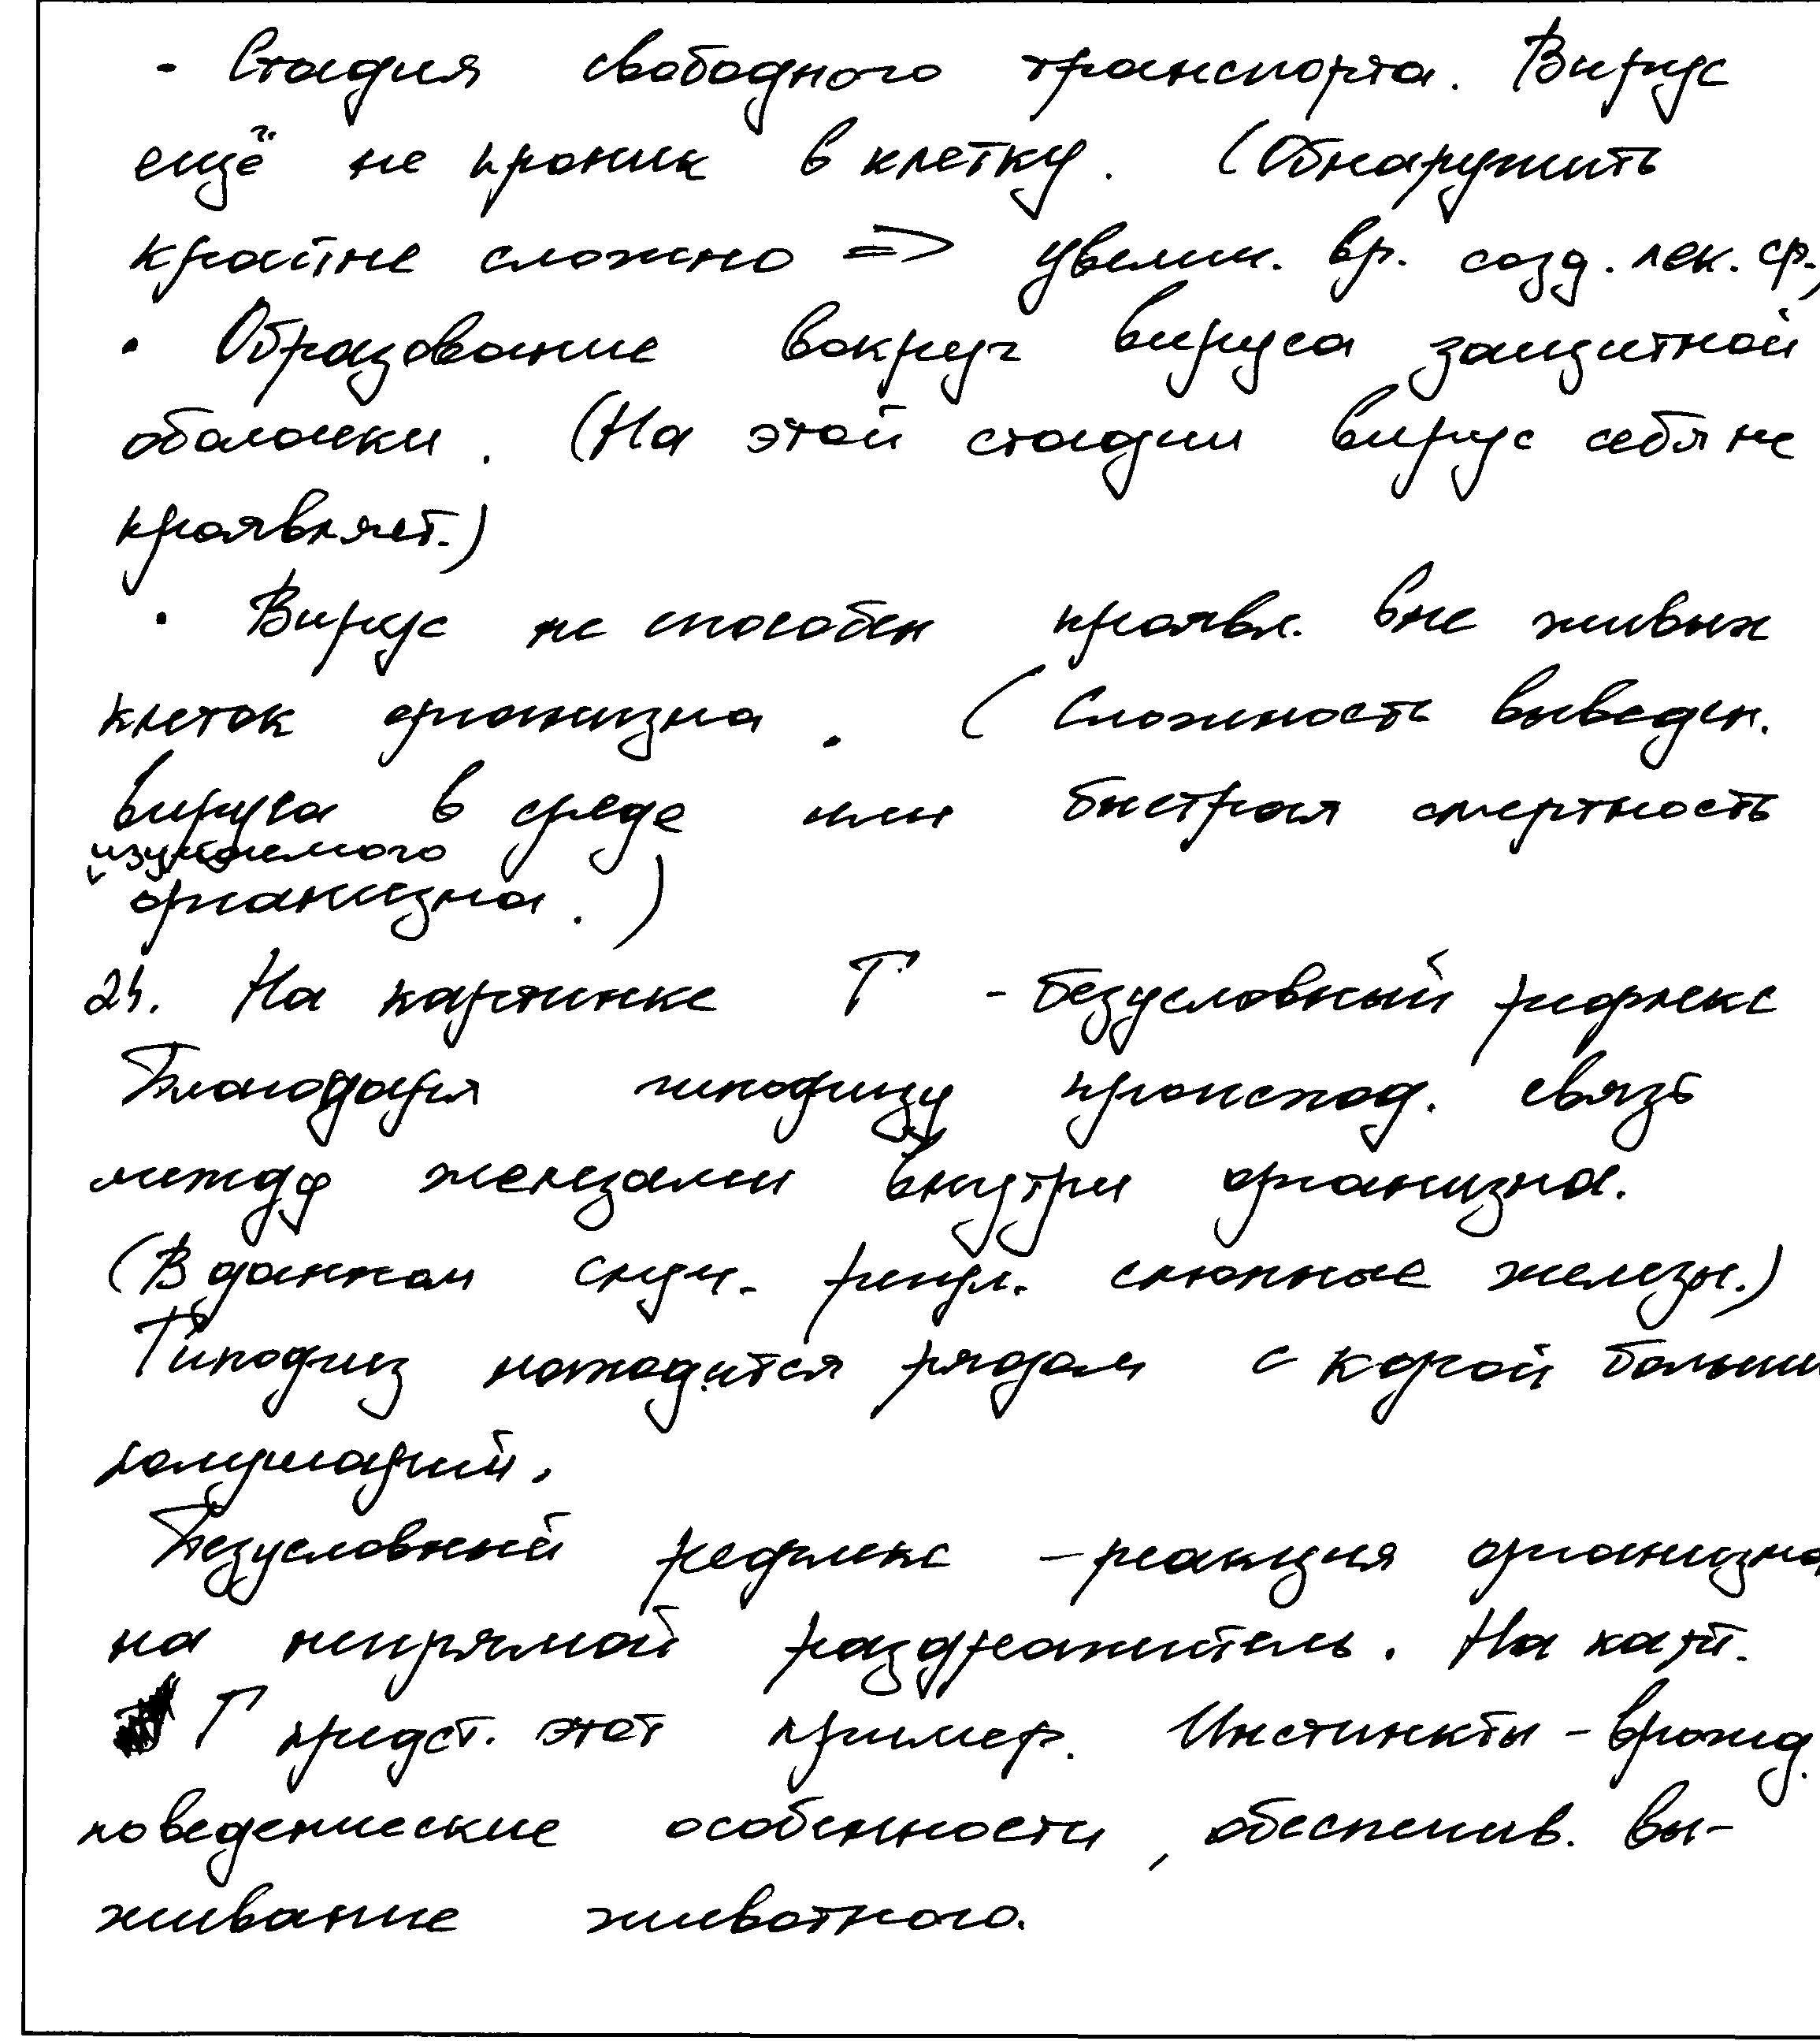 - Стадия свободного транспорта. Вирус
ещё не проник в клетку. (Обнаружить
крайне сложно => увелич. вр. созд. лек. ср.)
• Образование вокруг вируса защитной
оболочки. (На этой стадии вирус себя не
проявляет.)
• Вирус не способен проявл. вне живых
клеток организма. (Сложность выведен.
вируса в среде или быстрая смертность
изучаемого
организма.)
24. На картинке Г - безусловный рефлекс
Благодаря гипофизу происход. связь
между железами внутри организма.
(В данном случ. регул. слюнные железы.)
Гипофиз находится рядом с корой больши
полушарий.
Безусловный рефлекс – реакция организма
на непрямой раздражитель. На карт.
Г предст. этот пример. Инстинкты – врожд.
поведенческие особенности, обеспечив. вы-
живание животного.